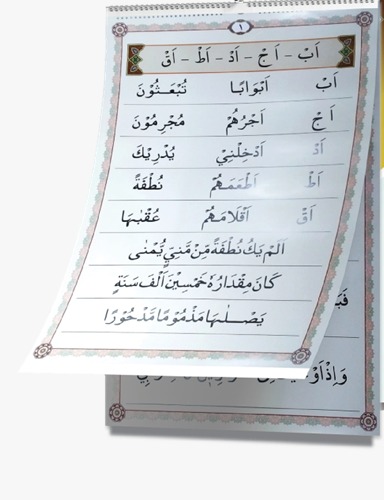 ١
اَبْ – اَجْ – اَدْ – اَطْ – اَقْ
اَبْ اَبْوَابًا تُبْعَثُوْنَ
اَجْ اَجْرُهُمْ مُجْرِمُوْنَ
اَدْ اَدْخِلْنِيْ يُدْرِيْكَ
اَطْ اَطْعَمَهُمْ نُطْفَةً
اَقْ اَقْلَامَهُمْ عُقْبٰىهَا
اَلَمْ يَكُ نُطْفَةً مِّنْ مَّنِيٍّ يُّمْنٰى
كَانَ مِقْدَارُهٗ خَمْسِيْنَ اَلْفَ سَنَةٍ
يَصْلٰىهَا مَذْمُوْمًا مَّدْحُوْرًا